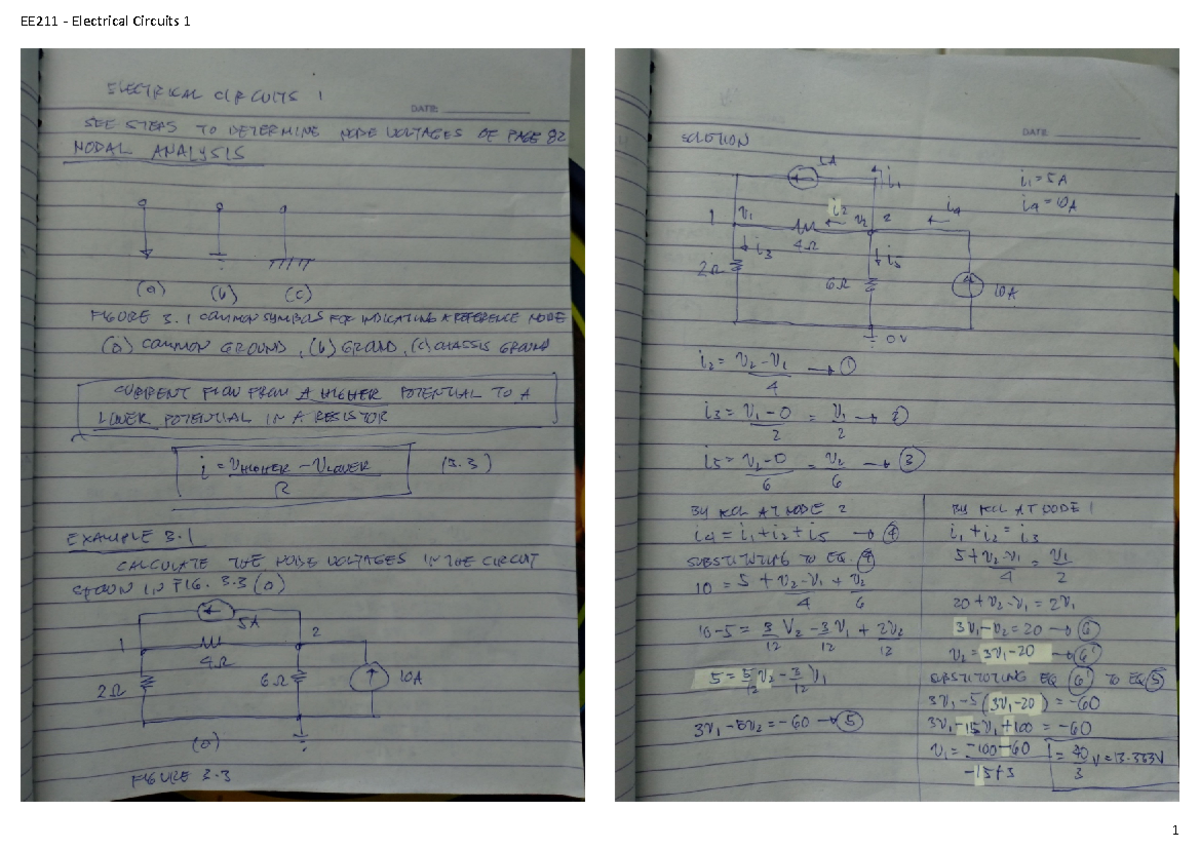 EE211 - Electrical Circuits 1
ELECTRICAL CIRCUITS 1
DATE
SEE STEPS TO DETERMINE NODE VOLTAGES OF PAGE 82
NODAL ANALYSIS
(a) (b) (c)
FIGURE 3.1 COMMON SYMBOLS FOR INDICATING A REFERENCE NODE
(a) COMMON GROUND, (b) GROUND, (c) CHASSIS GROUND
CURRENT FLOW FROM A HIGHER POTENTIAL TO A
LOWER POTENTIAL IN A RESISTOR
i = VHIGHER - VLOWER
R
(3.3)
EXAMPLE 3.1
CALCULATE THE NODE VOLTAGES IN THE CIRCUIT
SHOWN IN FIG. 3.3 (a)
5A
1 2
4Ω
2Ω 6Ω 10A
(a)
FIGURE 3.3
DATE
SOLUTION
5A
i1
i1 = 5A
i4 = 10A
1 v1 i2 v2 2 i4
4Ω
i3 i5
2Ω 6Ω 10A
0V
i2 = v2 - v1 → 1
4
i3 = v1 - 0 = v1 → 2
2 2
i5 = v2 - 0 = v2 → 3
6 6
BY KCL AT NODE 2
i4 = i1 + i2 + i5 → 4
SUBSTITUTING TO EQ. 4
10 = 5 + v2 - v1 + v2
4 6
10 - 5 = 3 V2 - 3 V1 + 2V2
12 12 12
5 = 5 v2 - 3 v1
12 12
3v1 - 5v2 = -60 → 5
BY KCL AT NODE 1
i1 + i2 = i3
5 + v2 - v1 = v1
4 2
20 + v2 - v1 = 2v1
3v1 - v2 = 20 → 6
v2 = 3v1 - 20 → 6'
SUBSTITUTING EQ 6' TO EQ 5
3v1 - 5(3v1 - 20) = -60
3v1 - 15v1 + 100 = -60
v1 = -100 - 60 = 40 V = 13.333V
-15 + 3 3
1